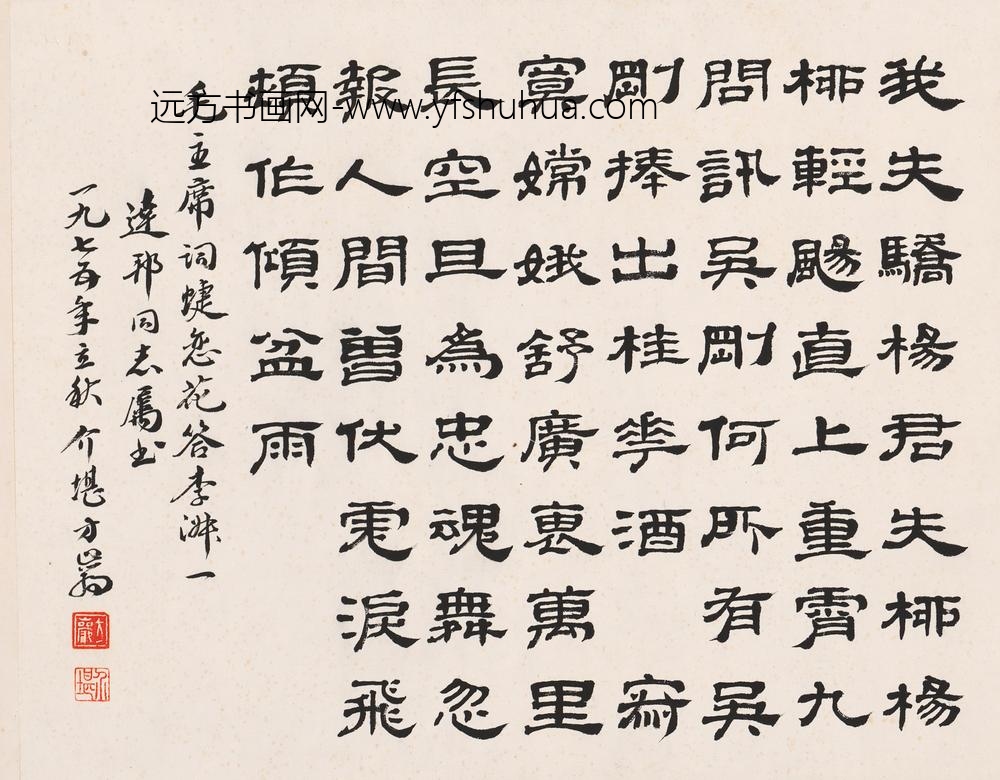 远方书画网-www.yfshuhua.com
我失驕楊君失桺楊
桺輕颺直上重霄九
問訊吳剛何所有吳
剛捧出桂華酒 寂
寞嫦娥舒廣褎萬里
長空且為忠魂舞忽
報人間曾伏虎淚飛
頓作傾盆雨
毛主席词蝶恋花答李淑一
達邦同志属书
一九七五年立秋 介堪方